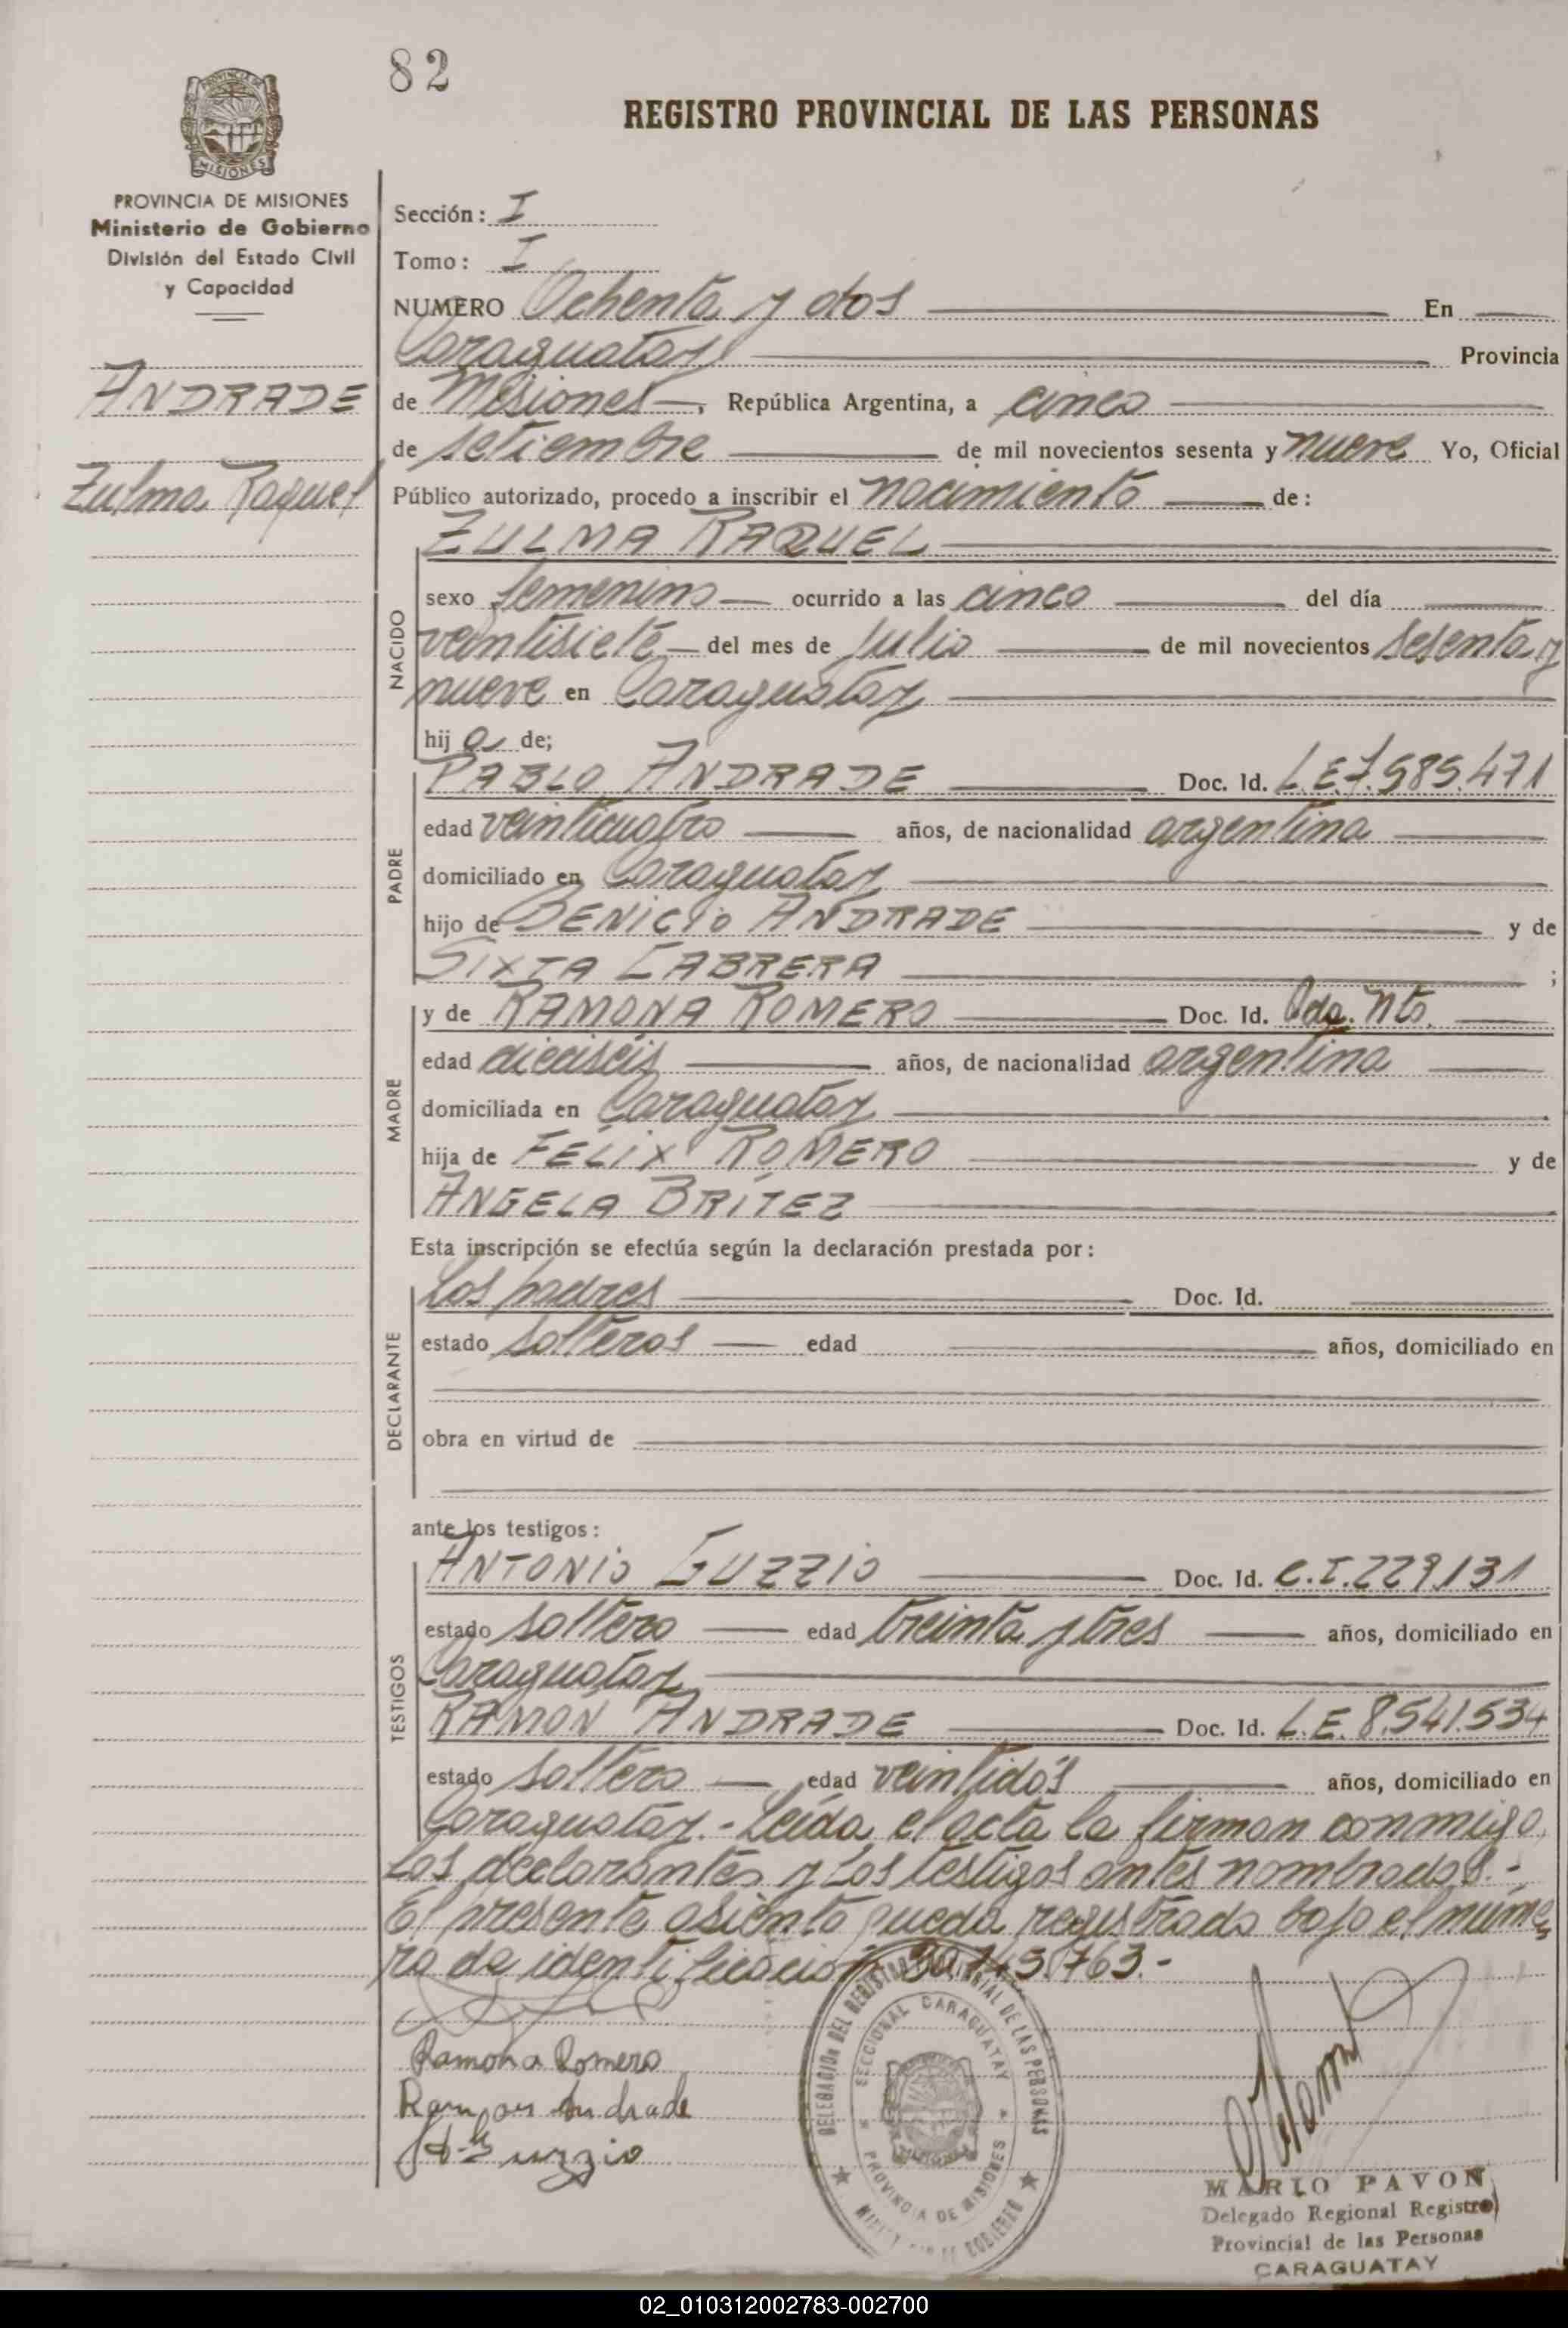 82
REGISTRO PROVINCIAL DE LAS PERSONAS
PROVINCIA DE MISIONES
Ministerio de Gobierno
División del Estado Civil
y Capacidad
ANDRADE
Zulma Raquel
Sección: I
Tomo: I
NUMERO Ochenta y dos En
Caraguatay Provincia
de Misiones, República Argentina, a cinco
de setiembre de mil novecientos sesenta y nueve Yo, Oficial
Público autorizado, procedo a inscribir el nacimiento de:
ZULMA RAQUEL
NACIDO
sexo femenino ocurrido a las cinco del día
veintisiete del mes de julio de mil novecientos sesenta y
nueve en Caraguatay
hij a de;
PADRE
PABLO ANDRADE Doc. Id. L.E. 7.585.471
edad veinticuatro años, de nacionalidad argentina
domiciliado en Caraguatay
hijo de BENICIO ANDRADE y de
SIXTA CABRERA ;
MADRE
y de RAMONA ROMERO Doc. Id. Nto.
edad dieciséis años, de nacionalidad argentina
domiciliada en Caraguatay
hija de FÉLIX ROMERO y de
ANGELA BRÍTEZ
Esta inscripción se efectúa según la declaración prestada por:
DECLARANTE
Los padres Doc. Id.
estado solteros edad años, domiciliado en
obra en virtud de
ante los testigos:
TESTIGOS
ANTONIO GUZZIO Doc. Id. C.I. 229.131
estado soltero edad treinta y tres años, domiciliado en
Caraguatay
RAMÓN ANDRADE Doc. Id. L.E. 8.541.534
estado soltero edad veintidós años, domiciliado en
Caraguatay.- Leída el acta la firman conmigo,
los declarantes y los testigos antes nombrados.-
El presente asiento queda registrado bajo el núme
ro de identificación 763.-
Ramona Romero
Ramon Andrade
DELEGACION DEL REGISTRO PROVINCIAL DE LAS PERSONAS
SECCIONAL CARAGUATAY
PROVINCIA DE MISIONES
MARIO PAVON
Delegado Regional Registro
Provincial de las Personas
CARAGUATAY
02_010312002783-002700